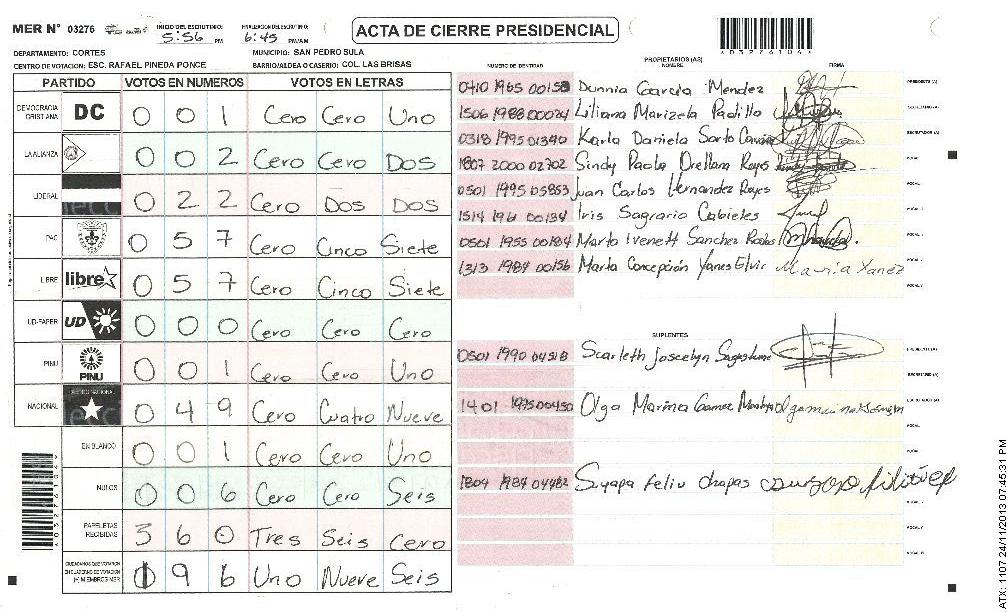 MER N° 03276 INICIO DEL ESCRUTINIO: 5:56 PM FINALIZACION DEL ESCRUTINIO: 6:45 PM/AM ACTA DE CIERRE PRESIDENCIAL
DEPARTAMENTO: CORTES MUNICIPIO: SAN PEDRO SULA
CENTRO DE VOTACION: ESC. RAFAEL PINEDA PONCE BARRIO/ALDEA O CASERIO: COL. LAS BRISAS
PARTIDO VOTOS EN NUMEROS VOTOS EN LETRAS
DEMOCRACIA CRISTIANA DC 0 0 1 Cero Cero Uno
LA ALIANZA 0 0 2 Cero Cero Dos
LIBERAL 0 2 2 Cero Dos Dos
PAC 0 5 7 Cero Cinco Siete
LIBRE libre 0 5 7 Cero Cinco Siete
UD-FAPER UD 0 0 0 Cero Cero Cero
PINU PINU 0 0 1 Cero Cero Uno
NACIONAL 0 4 9 Cero Cuatro Nueve
EN BLANCO 0 0 1 Cero Cero Uno
NULOS 0 0 6 Cero Cero Seis
PAPELETAS RECIBIDAS 3 6 0 Tres Seis Cero
CIUDADANOS QUE VOTARON EN CUADERNO DE VOTACION (+) MIEMBROS MER 1 9 6 Uno Nueve Seis
PROPIETARIOS (AS)
NUMERO DE IDENTIDAD NOMBRE FIRMA
0410 1965 00153 Dunnia Garcia Mendez PRESIDENTE (A)
1506 1988 00024 Liliana Marizela Padillo SECRETARIO (A)
0318 1995 01340 Karla Daniela Sarto ESCRUTADOR (A)
1807 2000 02702 Sindy Paola Orellana Reyes VOCAL
0501 1995 05853 Juan Carlos Hernandez Reyes VOCAL
1514 1961 00134 Iris Sagrario Cabieles VOCAL
0501 1955 00184 Marto Ivenett Sanchez VOCAL
1313 1984 00156 Marta Concepción Yanes Elvir Maria Yanez VOCAL
SUPLENTES
0501 1990 04518 Scarleth Joscelyn PRESIDENTE (A)
SECRETARIO (A)
1401 1995 00450 Olga Marina Gamez ESCRUTADOR (A)
VOCAL
VOCAL
1804 1984 04482 Suyapa Feliu chapas
VOCAL
ATX: 1107 24/11/2013 07:45:31 PM